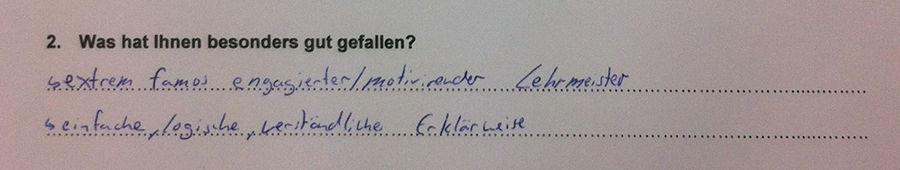 2. Was hat Ihnen besonders gut gefallen?
↳ extrem famos engagierter/motivirender Lehrmeister
↳ einfache, logische, verständliche Erklärweise